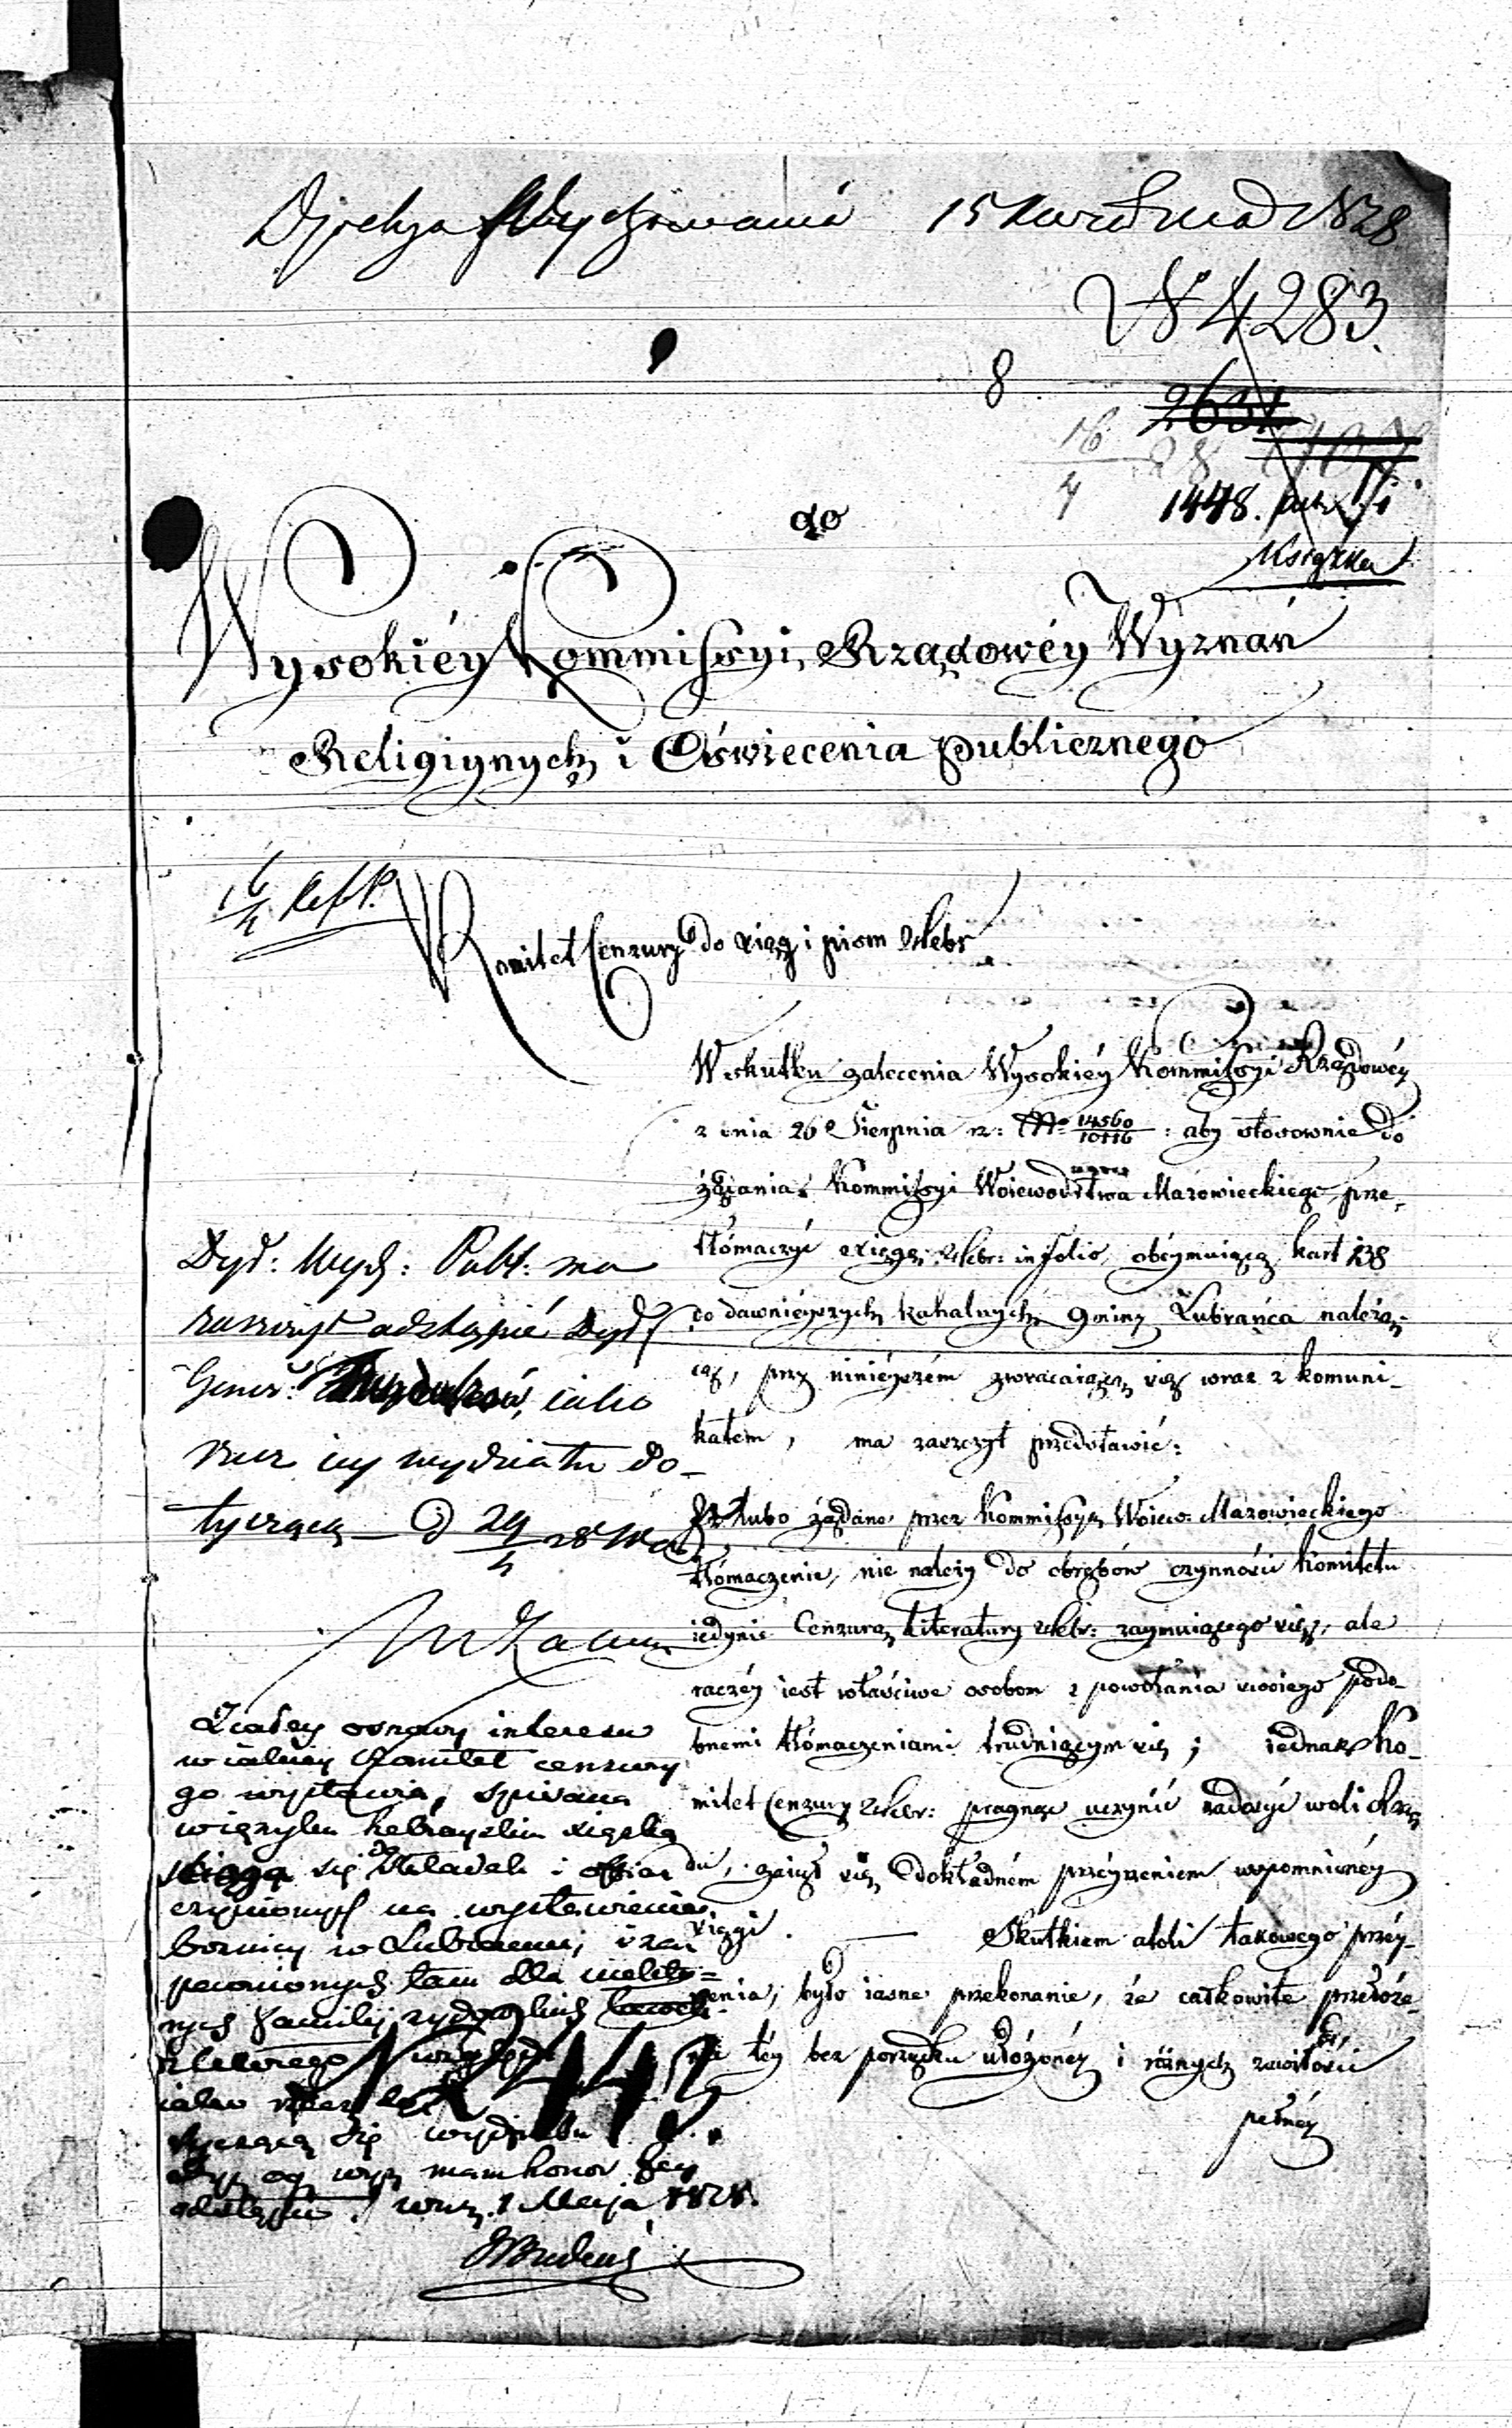 Dyrekcya Wychowania 15 Kwietnia 1828
N 4283.
8
2631
16
4
28
1448.
Książka
do
Wysokiéy Kommissyi Rządowéy Wyznań
Religiynych i Oświecenia Publicznego
16
4
Komitet Cenzury do xiąg i pism Hebr
W skutku zalecenia Wysokiéy Kommissyi Rządowéy
z dnia 26 Sierpnia r: No 14560/10116 : aby stosownie do
żądania Kommissyi Woiewodztwa Mazowieckiego, prze-
tłómaczyć xięgę Hebr: in folio, obéymuiącą kart 138
do dawniéyszych kahalnych gminy Lubrańca należą-
cą, przy ninieyszém zwracaiącą się wraz z komuni-
katem, ma zaszczyt przedstawić:
Że lubo żądane przez Kommissyą Woiew: Mazowieckiego
tłómaczenie, nie należy do obrębów czynności Komitetu
iedynie Cenzurą Literatury Hebr: zaymuiącego się, ale
raczéy iest właściwe osobom z powołania swoiego podo-
bnemi tłómaczeniami trudniącym się; iednak Ko-
mitet Cenzury Hebr: pragnąc uczynić zadosyć woli Rzą-
du, zaiął się dokładném przéyrzeniem wspomnionéy
xięgi. — Skutkiem atoli takowego przéy-
rzenia, było iasne przekonanie, że całkowite przełoże-
nie téy bez porządku ułożonéy i różnych zawiłości
pełnéy
Dyr. Wych: Publ: ma
zaszczyt odstąpić Dyr
Gener: iako
rzecz iey wydziału do-
tyczącą — d 29/4 28
Z całey osnowy interesu
w iakiey Komitet cenzury
go wystawia, spisana
w ięzyku hebrayskim xiążka
ściąga się do składek i ofiar
czynionych na wystawienie
bożnicy w Lubrańcu, i zaś
pewnionych tam dla niektó=
rych familij żydowskich
z którego względu
iako rzecz
tyczącą się wydziału
mam honor
odstąpić. War. 1 Maja 1828.
1443.